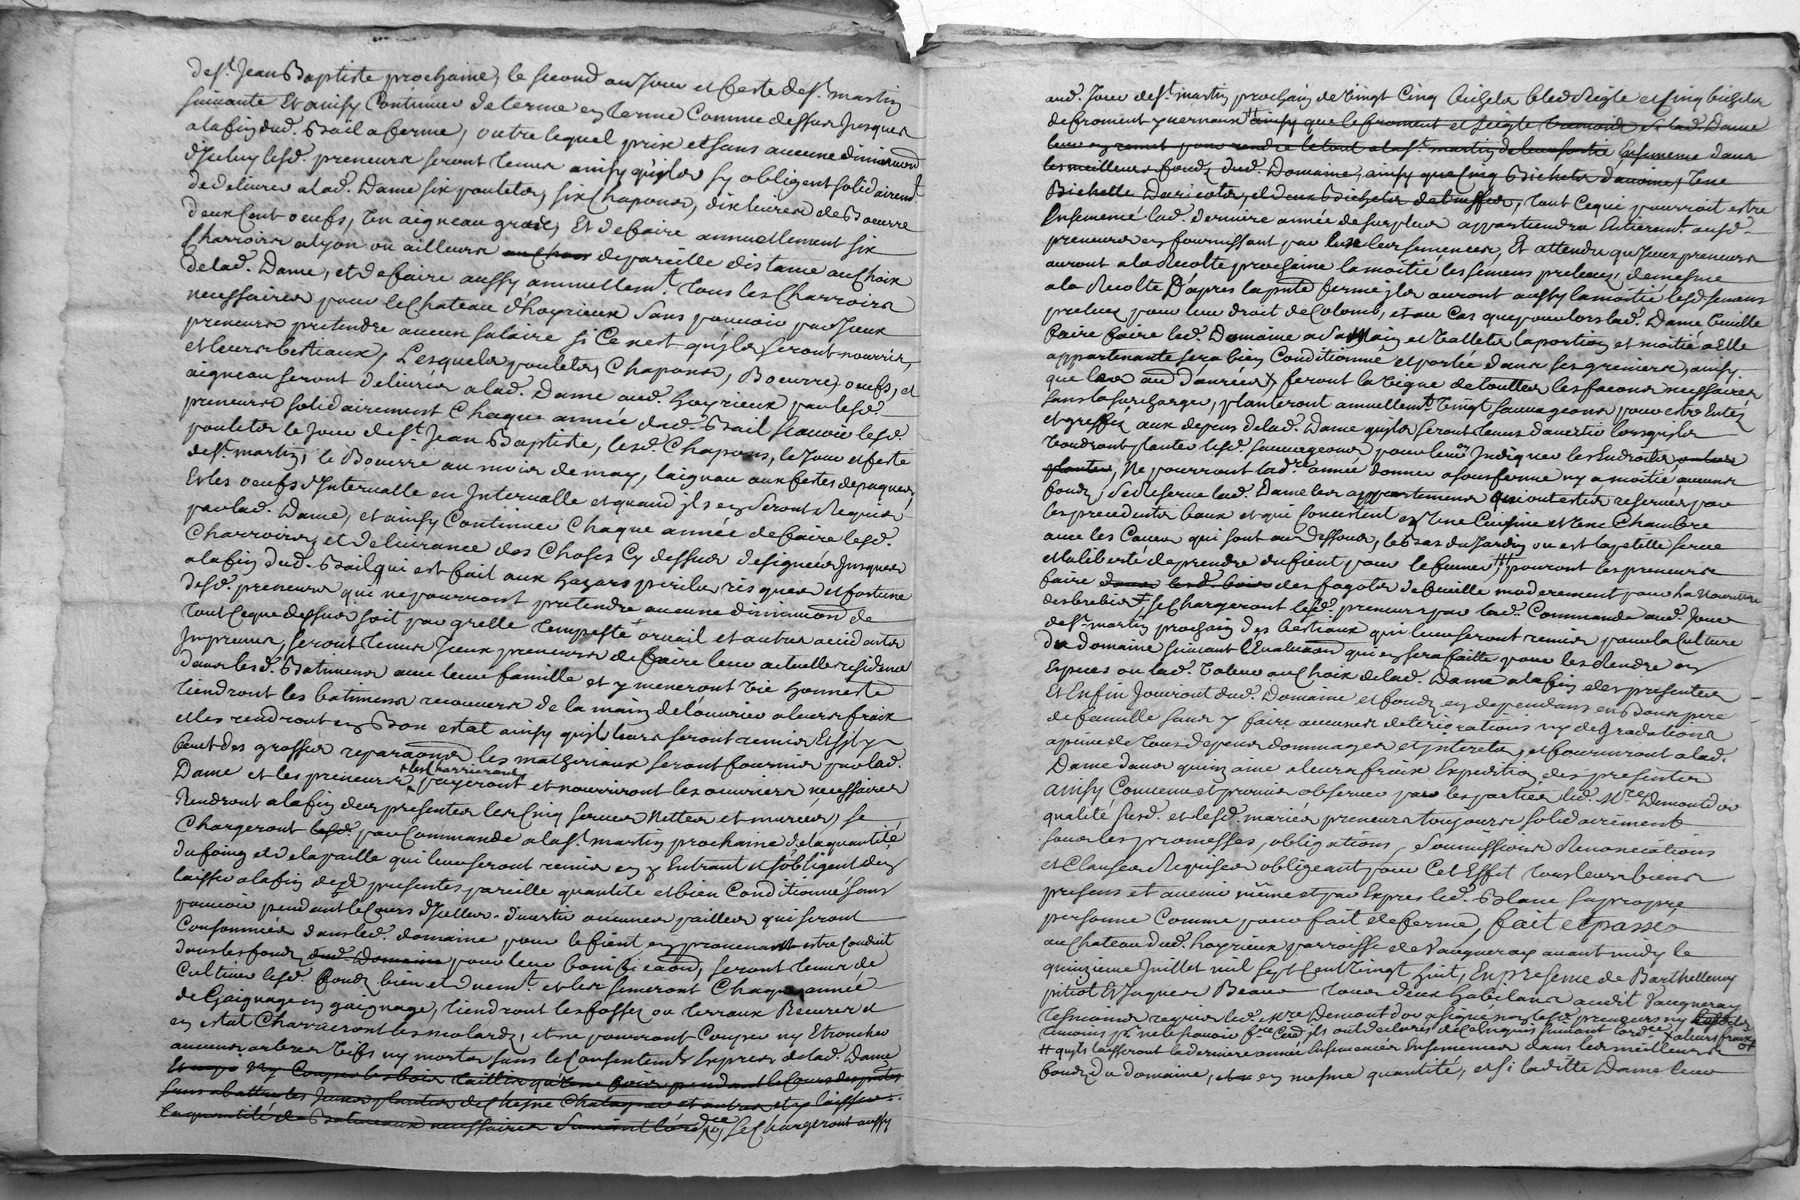 de st. Jean Baptiste prochaine, le second au Jour et feste de st. martin
suivante Et ainsy Continuer de terme en terme Comme dessus Jusques
a la fin dud. Bail a ferme, outre lequel prix et sans aucune diminuaon
d'Iceluy lesd. preneurs seront tenus ainsy qu'ils sy obligent solidairemt.
de delivrer a lad. Dame six poulets, six Chapons, dix livres de Boeurre
deux Cent oeufs, un aigneau gras, Et de faire annuellement six
Charrois a lyon ou ailleurs au Choix de pareille distance au Choix
de lad. Dame, et de faire aussy annuellemt. tous les Charrois
necessaires pour le Chateau d'hoyrieux sans pouvoir par Iceux
preneurs pretendre aucun salaire si Ce n'est qu'ils seront nourris,
et leurs bestiaux, Lesquels poulets, Chapons, Boeurre, oeufs, et
aigneau seront delivrés a lad. Dame aud. hoyrieux par lesd.
preneurs solidairement Chaque année dud. Bail scavoir lesd.
poulets le Jour de st. Jean Baptiste, lesd. Chapons, le Jour et feste
de st. martin, le Boeurre au mois de may, laigneau aux festes de paques,
Et les oeufs d'Intervalle en Intervalle et quand ils en seront Requis
par lad. Dame, et ainsy Continuer Chaque année de faire lesd.
Charrois, et delivrance des Choses Cy dessus designées Jusques
a la fin dud. Bail qui est fait aux hazars perils risques et fortune
desd. preneurs qui ne pourront pretendre aucune diminuaon de
tout Ceque dessus soit par grelle tempeste orvail et autres accidants
Impreveus, seront tenus Iceux preneurs de faire leur actuelle residence
dans lesd. Batimens avec leur famille et y meneront vie honneste
tiendront les batimens recouvers de la main de l'ouvrier a leurs fraix
et les rendront en Bon estat ainsy quils leurs seront remis Et sil y
faut des grosses reparaons les matheriaux seront fournis par lad.
Dame et les preneurs les charrieront payeront et nourriront les ouvriers necessaires
Rendront a la fin des presentes les Cinq serves Nettes et murées, se
Chargeront lesd. par Commande a la st. martin prochaine de la quantité
du foing et de la paille qui leur seront remis en y Entrant et s'obligent d'en
laisser a la fin des presentes pareille quantité et bien Conditionné sans
pouvoir pendant le Cours d'Icelles divertir aucunes pailles qui seront
Consommées dans led. domaine pour le fient en provenant estre Conduit
dans les fonds dud. Domaine pour leur bonificaon, seront tenus de
Cultiver lesd. fonds bien et duemt. et les semeront Chaque année
de Gaignage en gaignage, tiendront les fosses ou terraux Recurés et
en estat Charrieront les molards, et ne pourront Couper ny Etroncher
aucuns arbres vifs ny morts sans le Consentemt. Exprès de lad. Dame
ny Couper les bois taillis qu'une fois pendant le Cours des presentes
sans abattre les Jeunes plantes de Chesne Chataignier et autres et y laisser
la quantité de Baliveaux necessaires suivant lordce, se Chargeront aussy
aud. Jour de st. martin prochain de vingt Cinq bichets bled seigle et Cinq bichets
de froment yvernaux ainsy que le froment et seigle lad. Dame
leur en remet pour rendre le tout a la st. martin de leur sortie Ensemencé dans
les meilleurs fonds dud. Domaine, ainsy que Cinq Bichets d'avoine, Une
Bichette Daricots, et deux Bichets de truffes, tout Ce qui pourroit estre
Ensemencé lad. derniere année de surplus appartiendra Entieremt. ausd.
preneurs en fournissant par eux leurs semences, Et attendu qu'Iceux preneurs
auront a la Recolte prochaine la moitié les semens prelevés, de mesme
a la Recolte D'après la pnte ferme ils auront aussy la moitié lesd. semens
prelevés pour leur droit de Colons, et au Cas que pour lors lad. Dame veuille
faire faire led. Domaine a sa Main et Vallets la portion et moitié a Elle
appartenante sera bien Conditionné et portée dans ses greniers, ainsy
que lors aud. d'anrées, feront la vigne de touttes les facons necessaires
sans la surcharger, planteront annuellemt. vingt sauvageons pour estre Entés
et greffés aux depens de lad. Dame quils seront tenus d'avertir lorsquils
voudront planter lesd. sauvageons pour leur Indiquer les Endroits,
planter, Ne pourront lad. année donner a sousferme ny a moitié, aucuns
fonds, se Reserve lad. Dame les appartemens qui ont estés reservés par
les precedents baux et qui Consistent en Une Cuisine et Une Chambre
avec les Caves qui sont au dessous, le bas du Jardin ou est la petitte serve
et la liberté de prendre du fient pour le fumer, pourront les preneurs
faire dans lesd. bois des fagots de feuille moderement pour la Nourriture
des brebis, se Chargeront lesd. preneurs par lad. Commande aud. Jour
de st. martin prochain des bestiaux qui leur seront remis pour la Culture
du domaine suivant l'Evaluaon qui en sera faitte pour les Rendre en
Especes ou lad. valeur au Choix de lad. Dame a la fin des presentes
Et Enfin Jouiront dud. Domaine et fonds en dependans en Bons pere
de famille sans y faire aucunes deteriorations ny degradations
a peine de tous depens dommages et Interets, et fourniront a lad.
Dame dans quinzaine a leurs fraix Expedition des presentes
ainsy Convenu et promis observer par les parties led. Mre. Demontdor
qualité susd. et lesd. mariés preneurs toujours solidairement
sous les promesses, obligations, soumissions Renonciations
et Clauses Requises obligeant pour Cet Effet tous leurs biens
presens et avenir même et par Exprès led. Blanc sa propre
personne Comme pour fait de ferme, fait et passé
au Chateau dud. hoyrieux parroisse de Vaugneray avant midy le
quinzieme Juillet mil sept Cent vingt huit, En presence de Barthellemy
pitiot Et Jaques Beau tous deux habitans audit Vaugneray
tesmoins requis led. Mre. Demontdor a signé non lesd. preneurs ny
temoins pr. ne le scavoir fre. Ceux, ils ont declarés de Ce enquis suivant lordce. a leurs fraix
# quils laisseront la derniere année Ensemencée Ensemencer dans les meilleurs
fonds du domaine, en mesme quantité, et si laditte Dame leur